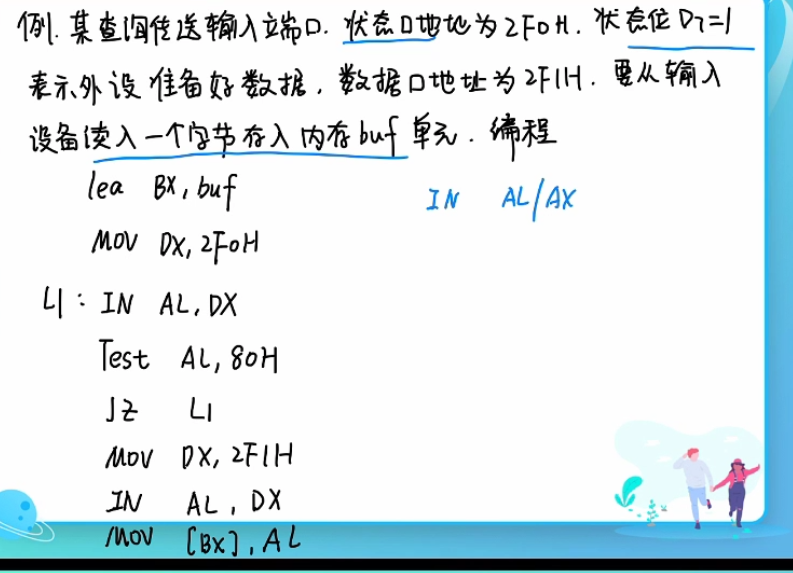 例. 某查询传送输入端口. 状态口地址为2F0H. 状态位D7=1
表示外设准备好数据, 数据口地址为2F1H. 要从输入
设备读入一个字节存入内存buf单元. 编程
lea BX, buf
IN AL/AX
MOV DX, 2F0H
L1: IN AL, DX
Test AL, 80H
JZ L1
MOV DX, 2F1H
IN AL, DX
MOV [BX], AL